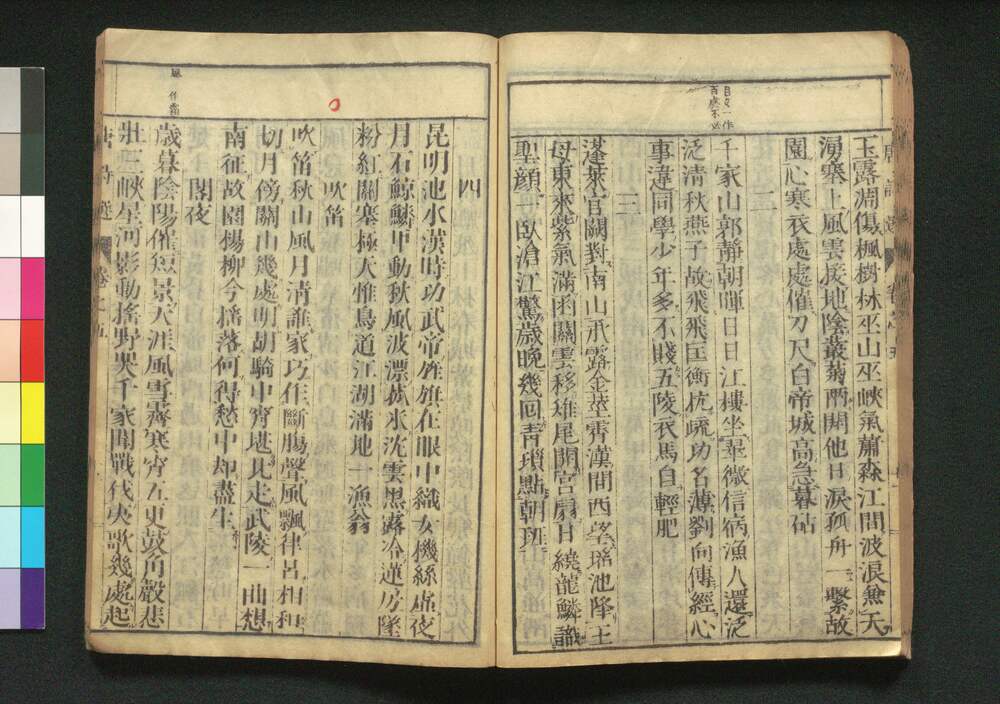 唐詩選 卷之五
玉露凋傷楓樹林巫山巫峽氣蕭森江間波浪兼天
湧塞上風雲接地陰叢菊兩開他日淚孤舟一繫故
園心寒衣處處催刀尺白帝城高急暮砧
二
千家山郭靜朝暉日日江樓坐翠微信宿漁人還泛
泛清秋燕子故飛飛匡衡抗疏功名薄劉向傳經心
事違同學少年多不賤五陵衣馬自輕肥
三
蓬萊宮闕對南山承露金莖霄漢間西望瑤池降王
母東來紫氣滿函關雲移雉尾開宮扇日繞龍鱗識
聖顏一臥滄江驚歲晚幾回青瑣點朝班
四
昆明池水漢時功武帝旌旗在眼中織女機絲虛夜
月石鯨鱗甲動秋風波漂菰米沈雲黑露冷蓮房墜
粉紅關塞極天惟鳥道江湖滿地一漁翁
吹笛
吹笛秋山風月清誰家巧作斷腸聲風飄律呂相和
切月傍關山幾處明胡騎中宵堪北走武陵一曲想
南征故園楊柳今搖落何得愁中却盡生
閣夜
歲暮陰陽催短景天涯風雪霽寒宵五更鼓角聲悲
壯三峽星河影動搖野哭千家聞戰伐夷歌幾處起
唐詩選 卷之五